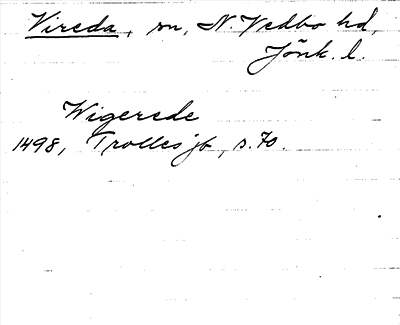 Vireda, sn, N. Vedbo hd,
Jönk. l.
Wigerede
1498, Trolles jb, s. 70.